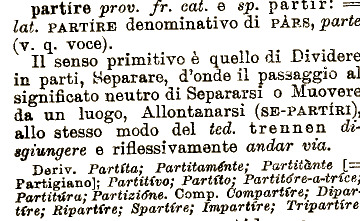 partíre prov. fr. cat. e sp. partir: =
lat. PARTÍRE denominativo di PÀRS, parte
(v. q. voce).
Il senso primitivo è quello di Dividere
in parti, Separare, d'onde il passaggio al
significato neutro di Separarsi o Muovere
da un luogo, Allontanarsi (SE-PARTÍRI),
allo stesso modo del ted. trennen di-
sgiungere e riflessivamente andar via.
Deriv. Partíta; Partitaménte; Partitànte [=
Partigiano]; Partitívo; Partíto; Partitóre-a-tríce;
Partitúra; Partizióne. Comp. Compartíre; Dipar-
tíre; Ripartíre; Spartíre; Impartíre; Tripartíre